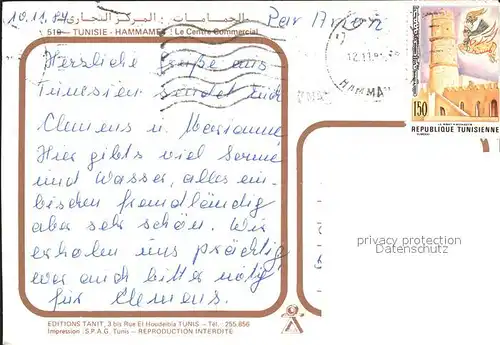 10.11.84
الحمامات : المركز التجاري
510 — TUNISIE - HAMMAMET : Le Centre Commercial
Par Avion
12.11
HAMMA
150
REPUBLIQUE TUNISIENNE
Herzliche Grüße aus
Tunesien sendet Euch
Clemens u. Marianne
Hier gibts viel Sonne
und Wasser, alles ein
bischen fremdländig
aber sehr schön. Wir
erholen uns prächtig
war auch bitter nötig
für Clemens.
privacy protection
Datenschutz
EDITIONS TANIT, 3 bis Rue El Houdeibia TUNIS — Tél. : 255.856
Impression : S.P.A.G. Tunis — REPRODUCTION INTERDITE